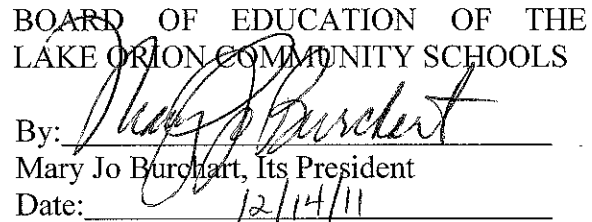 BOARD OF EDUCATION OF THE
LAKE ORION COMMUNITY SCHOOLS
By: Mary Jo Burchart
Mary Jo Burchart, Its President
Date: 12/14/11